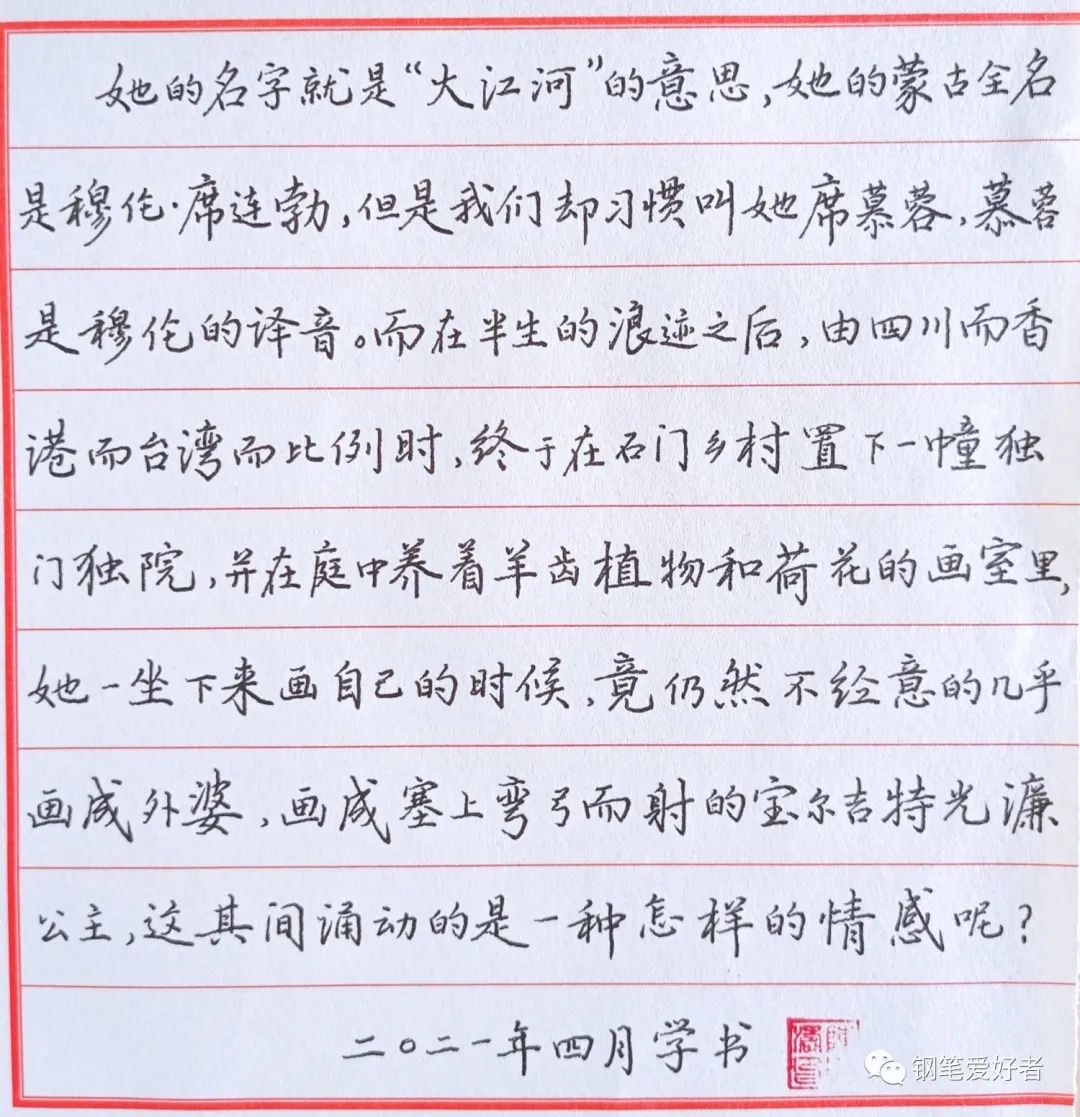 她的名字就是“大江河”的意思,她的蒙古全名
是穆伦·席连勃,但是我们却习惯叫她席慕蓉,慕蓉
是穆伦的译音。而在半生的浪迹之后,由四川而香
港而台湾而比例时,终于在石门乡村置下一幢独
门独院,并在庭中养着羊齿植物和荷花的画室里,
她一坐下来画自己的时候,竟仍然不经意的几乎
画成外婆,画成塞上弯弓而射的宝尔吉特光濂
公主,这其间涌动的是一种怎样的情感呢?
二〇二一年四月学书
钢笔爱好者